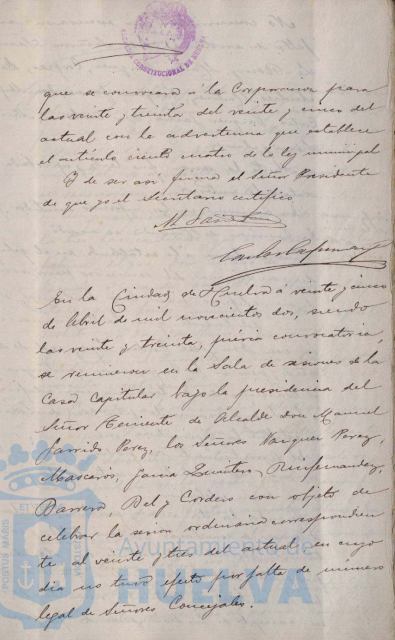 que se convocará a la Corporacion para
las veinte y treinta del veinte y cinco del
actual con la advertencia que establece
el articulo ciento cuatro de la ley municipal
Y de ser asi firma el Señor Presidente
de que yo el Secretario certifico
En la Ciudad de Huelva á veinte y cinco
de Abril de mil novecientos dos, siendo
las veinte y treinta, prévia convocatoria,
se reunieron en la Sala de sesiones de la
Casa Capitular bajo la presidencia del
Señor Teniente de Alcalde Don Manuel
Garrido Perez, los Señores Vazquez Perez,
Mascarós, Garcia Quintero,
Barrero, Bel y Cordero con objeto de
celebrar la sesion ordinaria correspondien
te al veinte y tres del actual en cuyo
dia no tuvo efecto por falta de número
legal de Señores Concejales.
Ayuntamiento de
HUELVA
PORTUS MARIS
CONSTITUCIONAL DE HUELVA